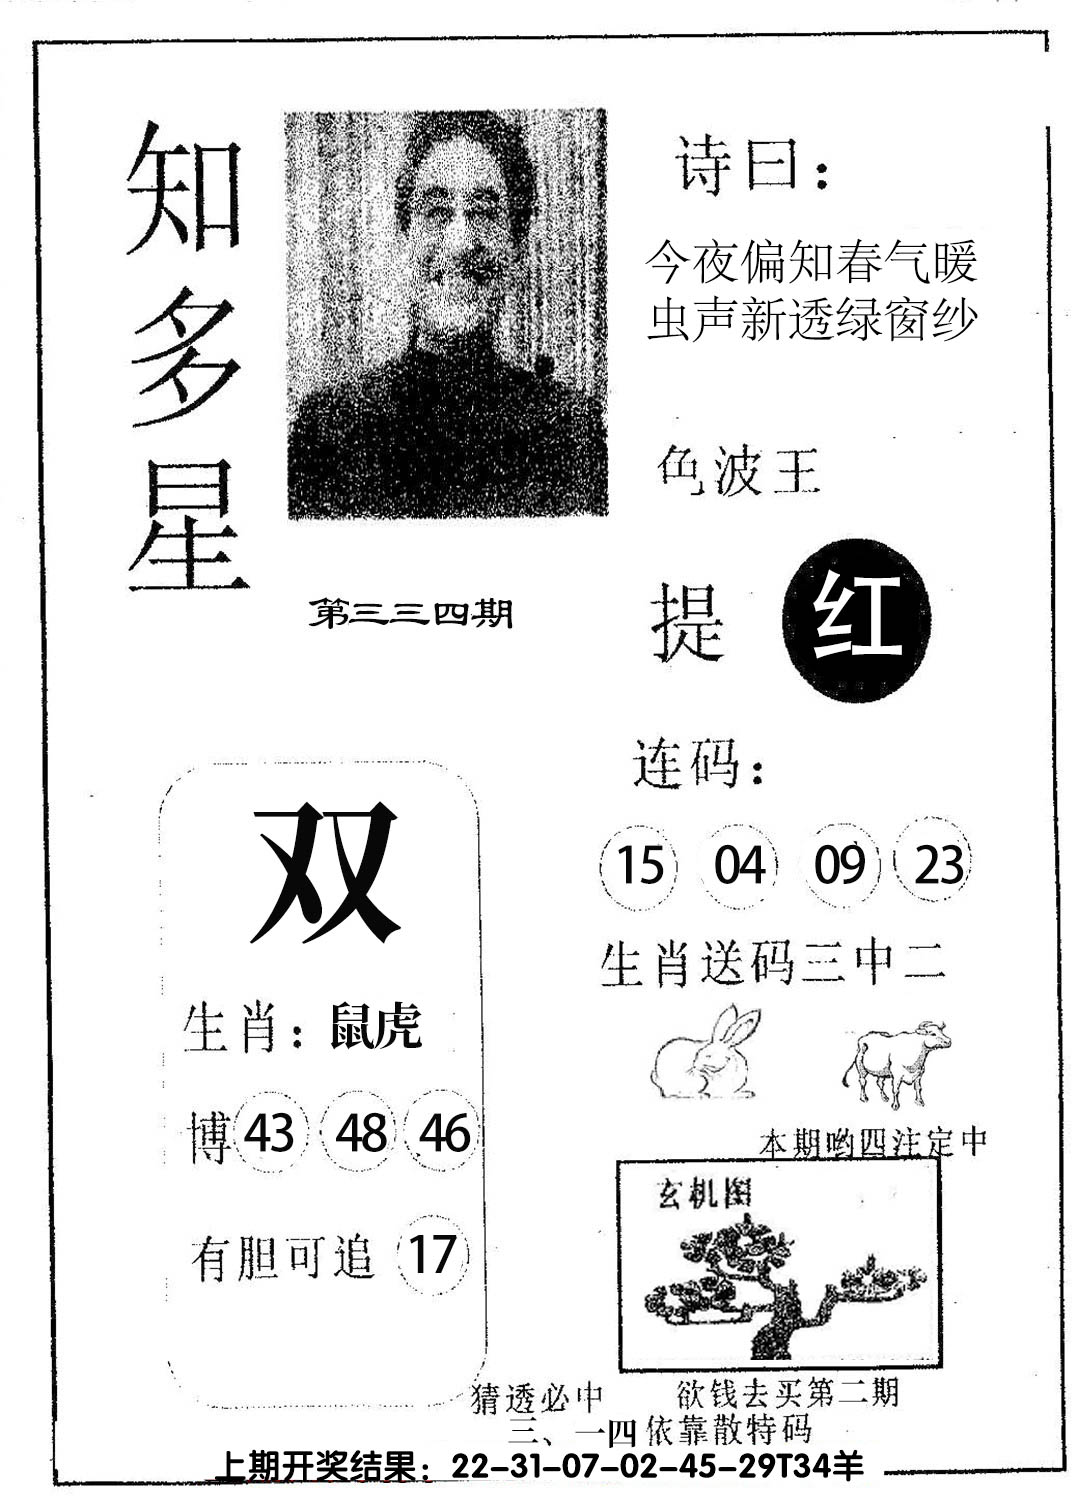 知多星
第三三四期
诗曰：
今夜偏知春气暖
虫声新透绿窗纱
色波王
提 红
连码：
15 04 09 23
生肖送码三中二
本期哟四注定中
玄机图
双
生肖：鼠虎
博 43 48 46
有胆可追 17
猜透必中 欲钱去买第二期
三、一四依靠散特码
上期开奖结果：22-31-07-02-45-29T34羊